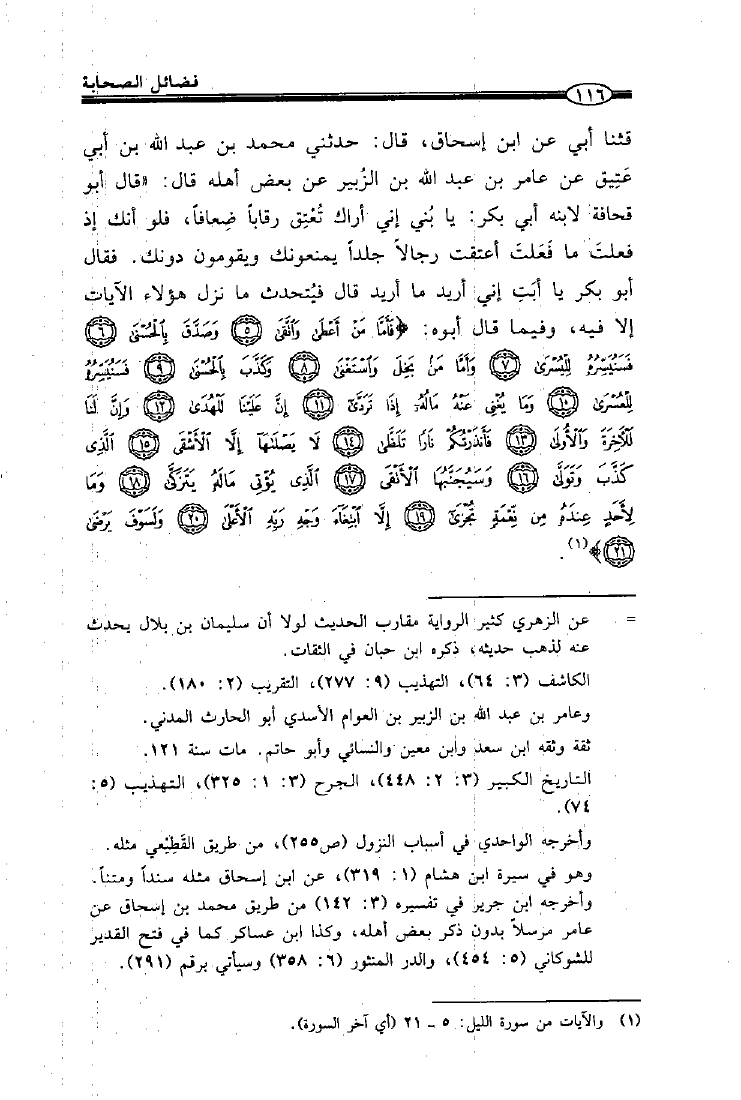 فضائل الصحابة
١١٦
قثنا أبي عن ابن إسحاق، قال: حدثني محمد بن عبد الله بن أبي
عَتِيق عن عامر بن عبد الله بن الزُبير عن بعض أهله قال: «قال أبو
قحافة لابنه أبي بكر: يا بُني إني أراك تُعْتِق رقاباً ضِعافاً، فلو أنك إذ
فعلتَ ما فَعَلتَ أعتقت رجالاً جلداً يمنعونك ويقومون دونك. فقال
أبو بكر يا أبَتِ إني أريد ما أريد قال فيُتحدث ما نزل هؤلاء الآيات
إلا فيه، وفيما قال أبوه: ﴿فَأَمَّا مَنْ أَعْطَىٰ وَٱتَّقَىٰ ۝٥ وَصَدَّقَ بِٱلْحُسْنَىٰ ۝٦
فَسَنُيَسِّرُهُۥ لِلْيُسْرَىٰ ۝٧ وَأَمَّا مَنۢ بَخِلَ وَٱسْتَغْنَىٰ ۝٨ وَكَذَّبَ بِٱلْحُسْنَىٰ ۝٩ فَسَنُيَسِّرُهُۥ
لِلْعُسْرَىٰ ۝١٠ وَمَا يُغْنِى عَنْهُ مَالُهُۥٓ إِذَا تَرَدَّىٰٓ ۝١١ إِنَّ عَلَيْنَا لَلْهُدَىٰ ۝١٢ وَإِنَّ لَنَا
لَلْآخِرَةَ وَٱلْأُولَىٰ ۝١٣ فَأَنذَرْتُكُمْ نَارًا تَلَظَّىٰ ۝١٤ لَا يَصْلَىٰهَآ إِلَّا ٱلْأَشْقَى ۝١٥ ٱلَّذِى
كَذَّبَ وَتَوَلَّىٰ ۝١٦ وَسَيُجَنَّبُهَا ٱلْأَتْقَى ۝١٧ ٱلَّذِى يُؤْتِى مَالَهُۥ يَتَزَكَّىٰ ۝١٨ وَمَا
لِأَحَدٍ عِندَهُۥ مِن نِّعْمَةٍ تُجْزَىٰٓ ۝١٩ إِلَّا ٱبْتِغَآءَ وَجْهِ رَبِّهِ ٱلْأَعْلَىٰ ۝٢٠ وَلَسَوْفَ يَرْضَىٰ
۝٢١﴾(١).
= عن الزهري كثير الرواية مقارب الحديث لولا أن سليمان بن بلال يحدث
عنه لذهب حديثه، ذكره ابن حبان في الثقات.
الكاشف (٣: ٦٤)، التهذيب (٩: ٢٧٧)، التقريب (٢: ١٨٠).
وعامر بن عبد الله بن الزبير بن العوام الأسدي أبو الحارث المدني.
ثقة وثقه ابن سعد وابن معين والنسائي وأبو حاتم. مات سنة ١٢١.
التاريخ الكبير (٣: ٢: ٤٤٨)، الجرح (٣: ١: ٣٢٥)، التهذيب (٥:
٧٤).
وأخرجه الواحدي في أسباب النزول (ص٢٥٥)، من طريق القَطِيْعي مثله.
وهو في سيرة ابن هشام (١: ٣١٩)، عن ابن إسحاق مثله سنداً ومتناً.
وأخرجه ابن جرير في تفسيره (٣: ١٤٢) من طريق محمد بن إسحاق عن
عامر مرسلاً بدون ذكر بعض أهله، وكذا ابن عساكر كما في فتح القدير
للشوكاني (٥: ٤٥٤)، والدر المنثور (٦: ٣٥٨) وسيأتي برقم (٢٩١).
(١) والآيات من سورة الليل: ٥ - ٢١ (أي آخر السورة).